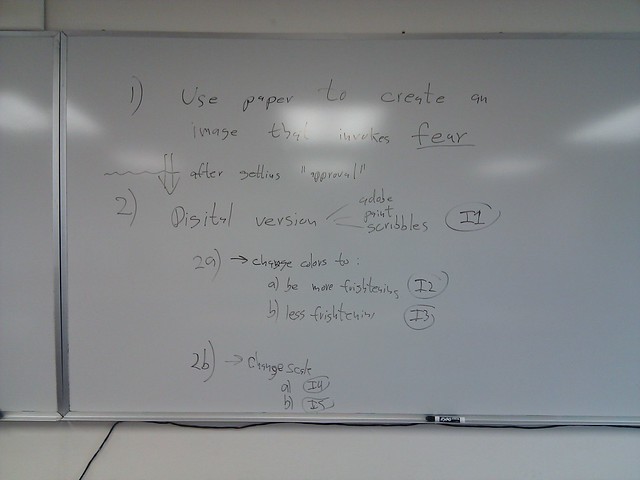 1) Use paper to create an
image that invokes fear
after getting "approval"
2) Digital version
adobe
paint
scribbles
I1
2a) → change colors to:
a) be more frightening I2
b) less frightening I3
2b) → Change scale
a) I4
b) I5